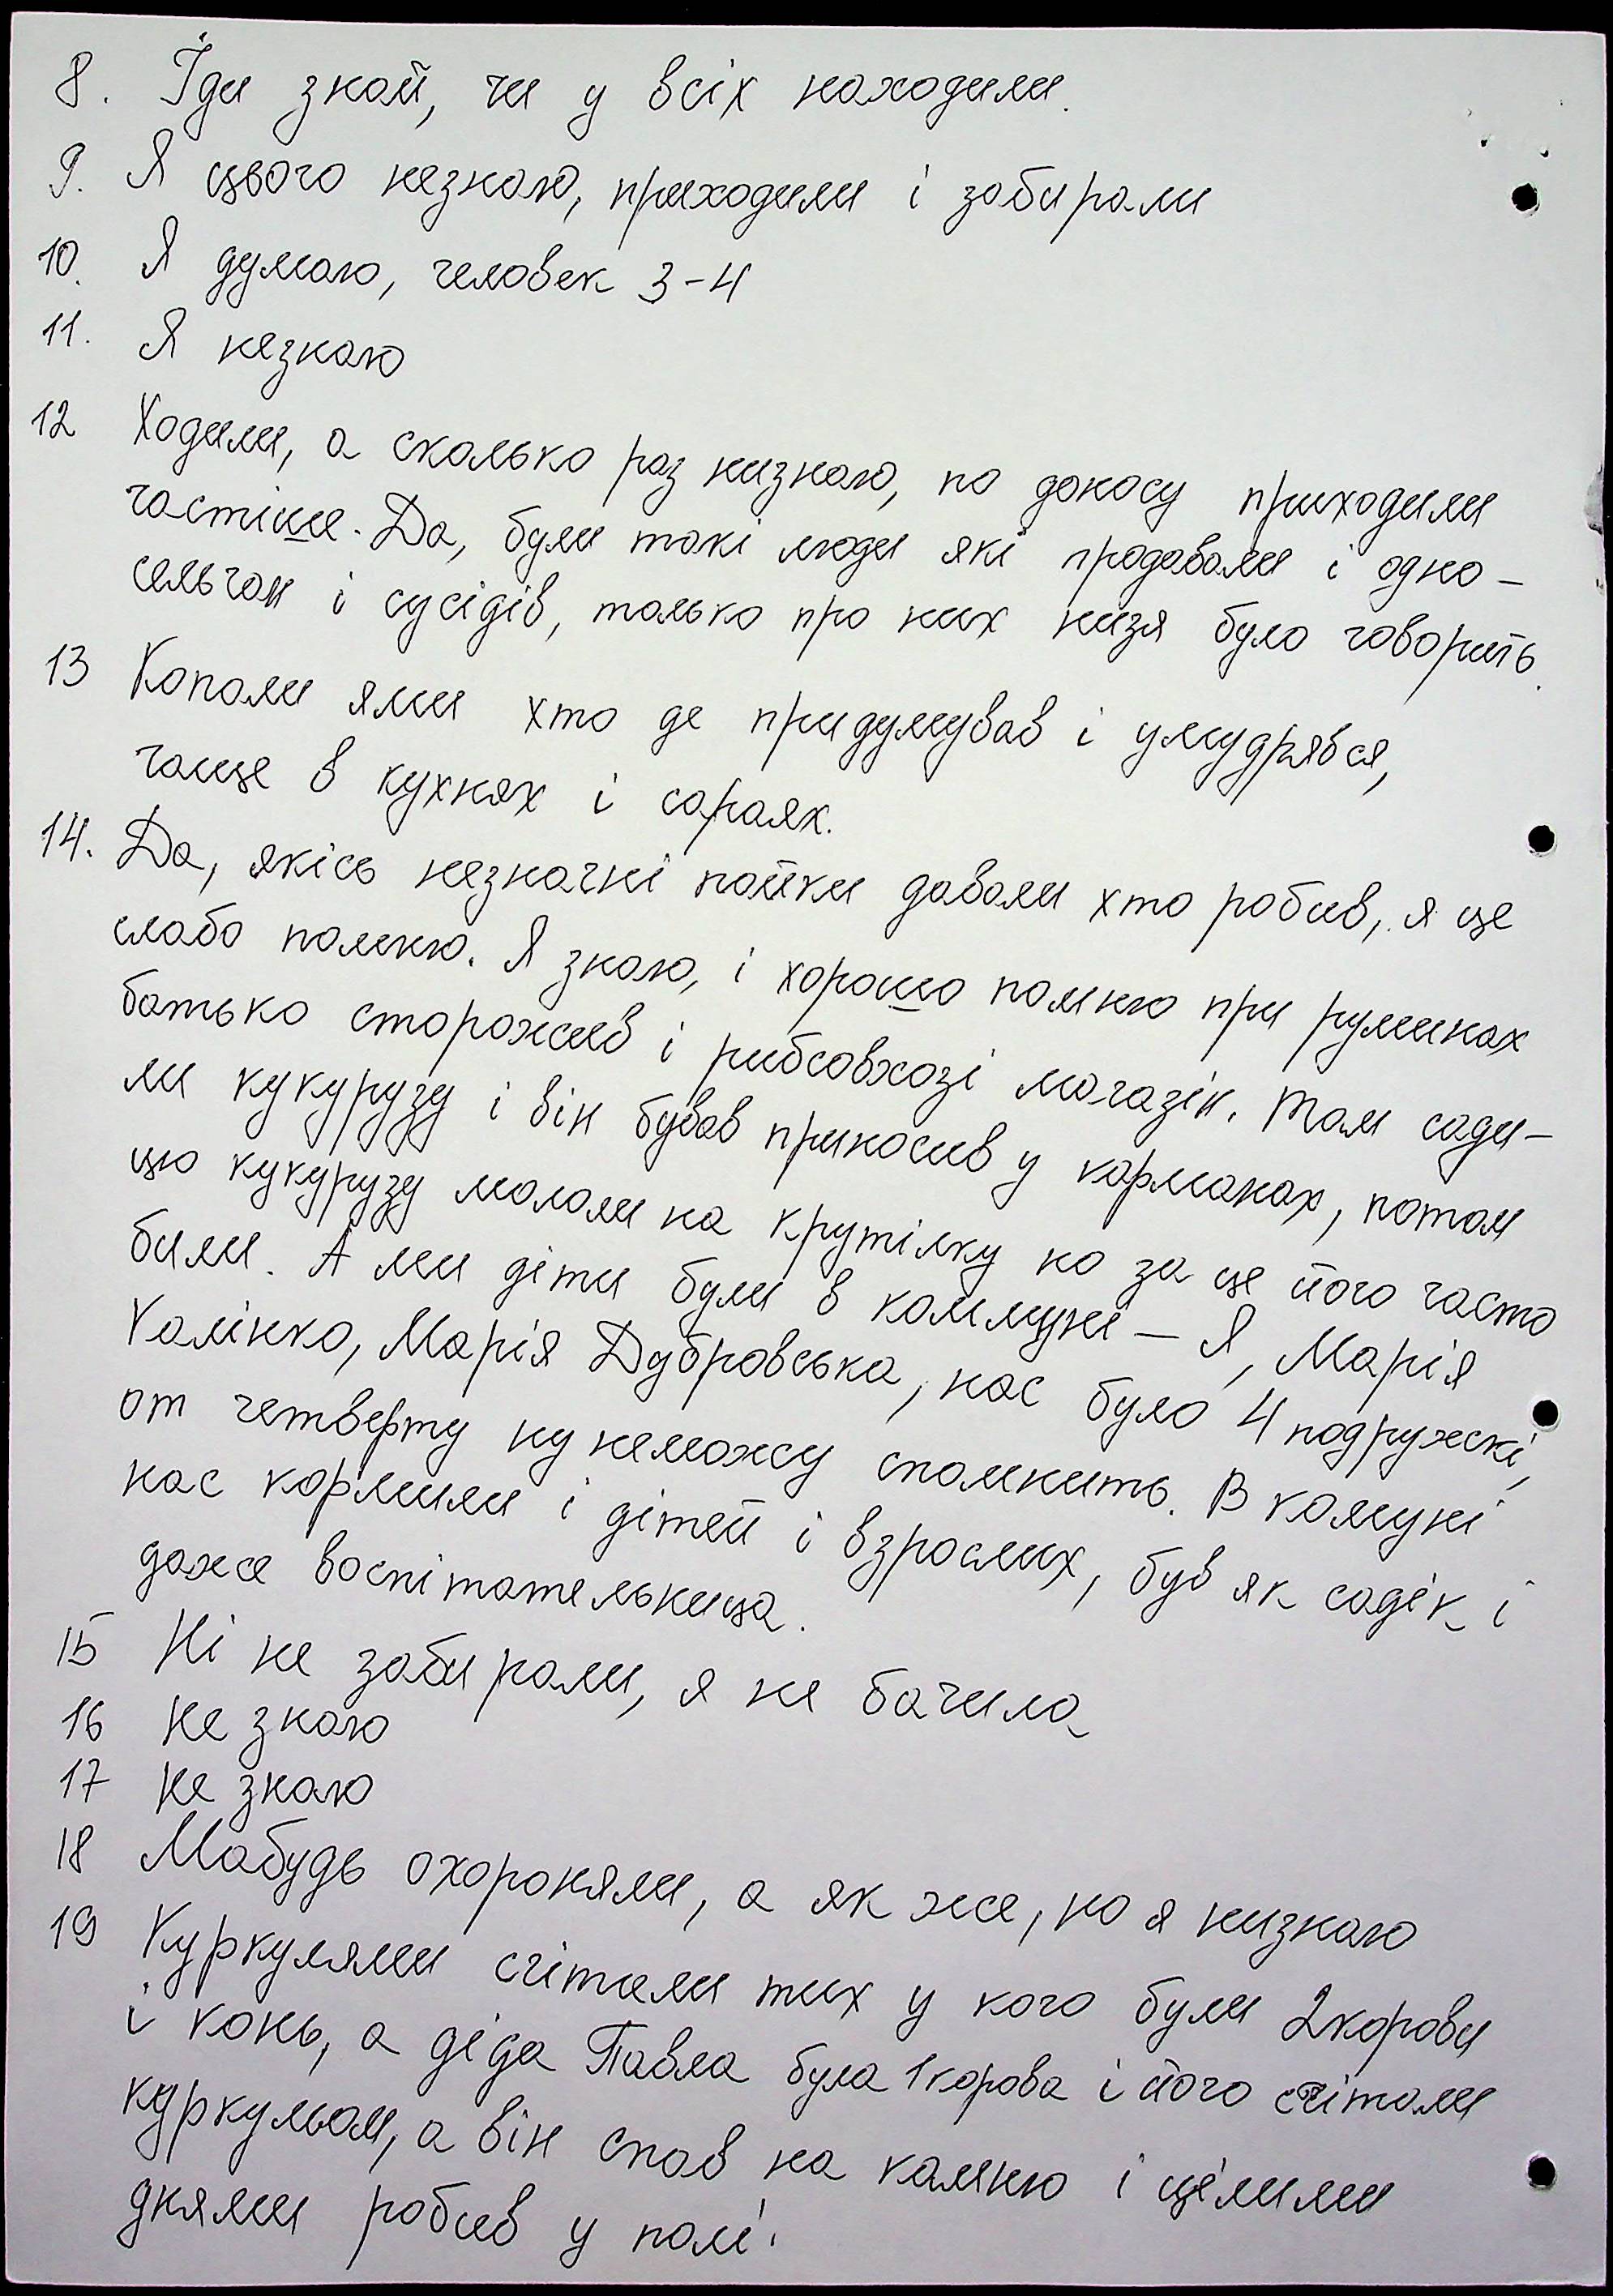 8. Їди знай, чи у всіх находили.
9. Я цього незнаю, приходили і забирали
10. Я думаю, человек 3-4
11. Я незнаю
12 Ходили, а сколько раз низнаю, по доносу приходили
частіше. Да, були такі люди які продавали і одно-
сельчан і сусідів, только про них низя було говорить.
13 Копали ями хто де придумував і умудрявся,
чаще в кухнях і сараях.
14. Да, якісь незначні пайки давали хто робив, я це
слабо помню. Я знаю, і хорошо помню при руминах
батько сторожив і рибсовхозі магазін. Там сади-
ли кукурузу і він бував приносив у карманах, потом
цю кукурузу мололи на крутілку но за це його часто
били. А ми діти були в коммуні - Я, Марія
Калінко, Марія Дубровська, нас було 4 подружкі,
от четверту ну неможу спомнить. В комуні
нас кормили і дітей і взрослих, був як садік і
даже воспітательниця.
15 Ні не забирали, я не бачила
16 Не знаю
17 Не знаю
18 Мабудь охороняли, а як же, но я низнаю
19 Куркулями счітали тих у кого були 2 корови
і конь, а діда Павла була 1 корова і його счітали
куркульом, а він спав на камню і цілими
днями робив у полі.